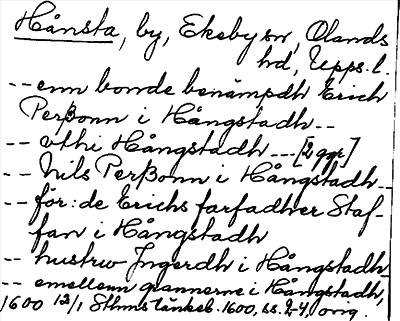 Hånsta, by, Ekeby sn, Olands
hd, Upps. l.
-- enn bonde benämpdh Erich
Perßonn i Hångstadh --
-- vthi Hångstadh --- [2 ggr]
-- Nils Perßonn i Hångstadh --
-- för:de Erichs farfadher Staf-
fan i Hångstadh
-- hustrw Jngerdh i Hångstadh
-- emellenn grannerne i Hångstadh,
1600 13/1 Sthms tänkeb. 1600, ss. 2-4, orig.